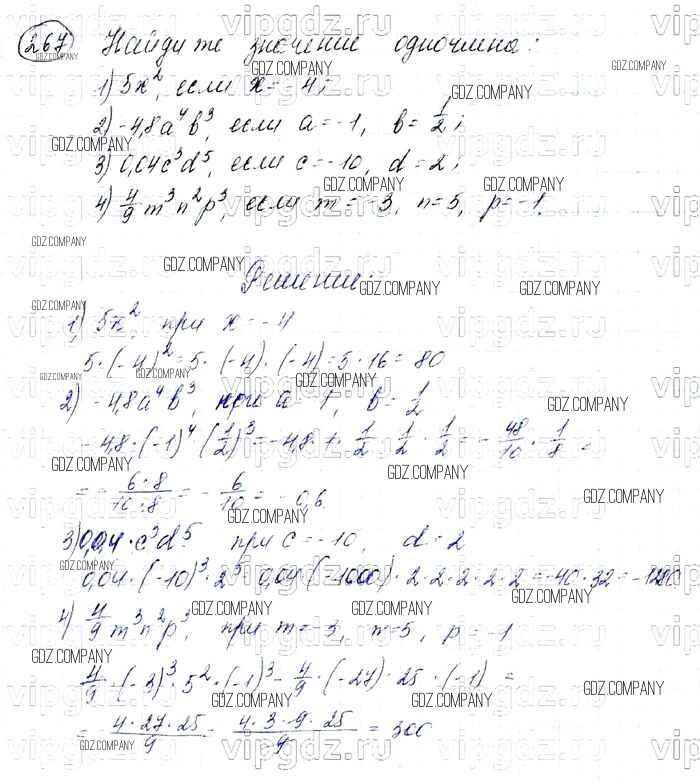 267 Найдите значение одночлена:
1) 5x², если x = -4;
2) -4,8a⁴b³, если a = -1, b = 1/2;
3) 0,04c³d⁵, если c = -10, d = 2;
4) 4/9 m³n²p³, если m = -3, n = 5, p = -1.
Решение:
1) 5x², при x = -4
5·(-4)² = 5·(-4)·(-4) = 5·16 = 80
2) -4,8a⁴b³, при a = -1, b = 1/2
-4,8·(-1)⁴·(1/2)³ = -4,8·1·1/2·1/2·1/2 = -48/10·1/8 =
= -6·8/10·8 = -6/10 = -0,6.
3) 0,04·c³d⁵ при c = -10, d = 2
0,04·(-10)³·2⁵ = 0,04·(-1000)·2·2·2·2·2 = -40·32 = -1280
4) 4/9 m³n²p³, при m = -3, n = 5, p = -1
4/9·(-3)³·5²·(-1)³ = 4/9·(-27)·25·(-1) =
= 4·27·25/9 = 4·3·9·25/9 = 300
GDZ.COMPANY
vipgdz.ru